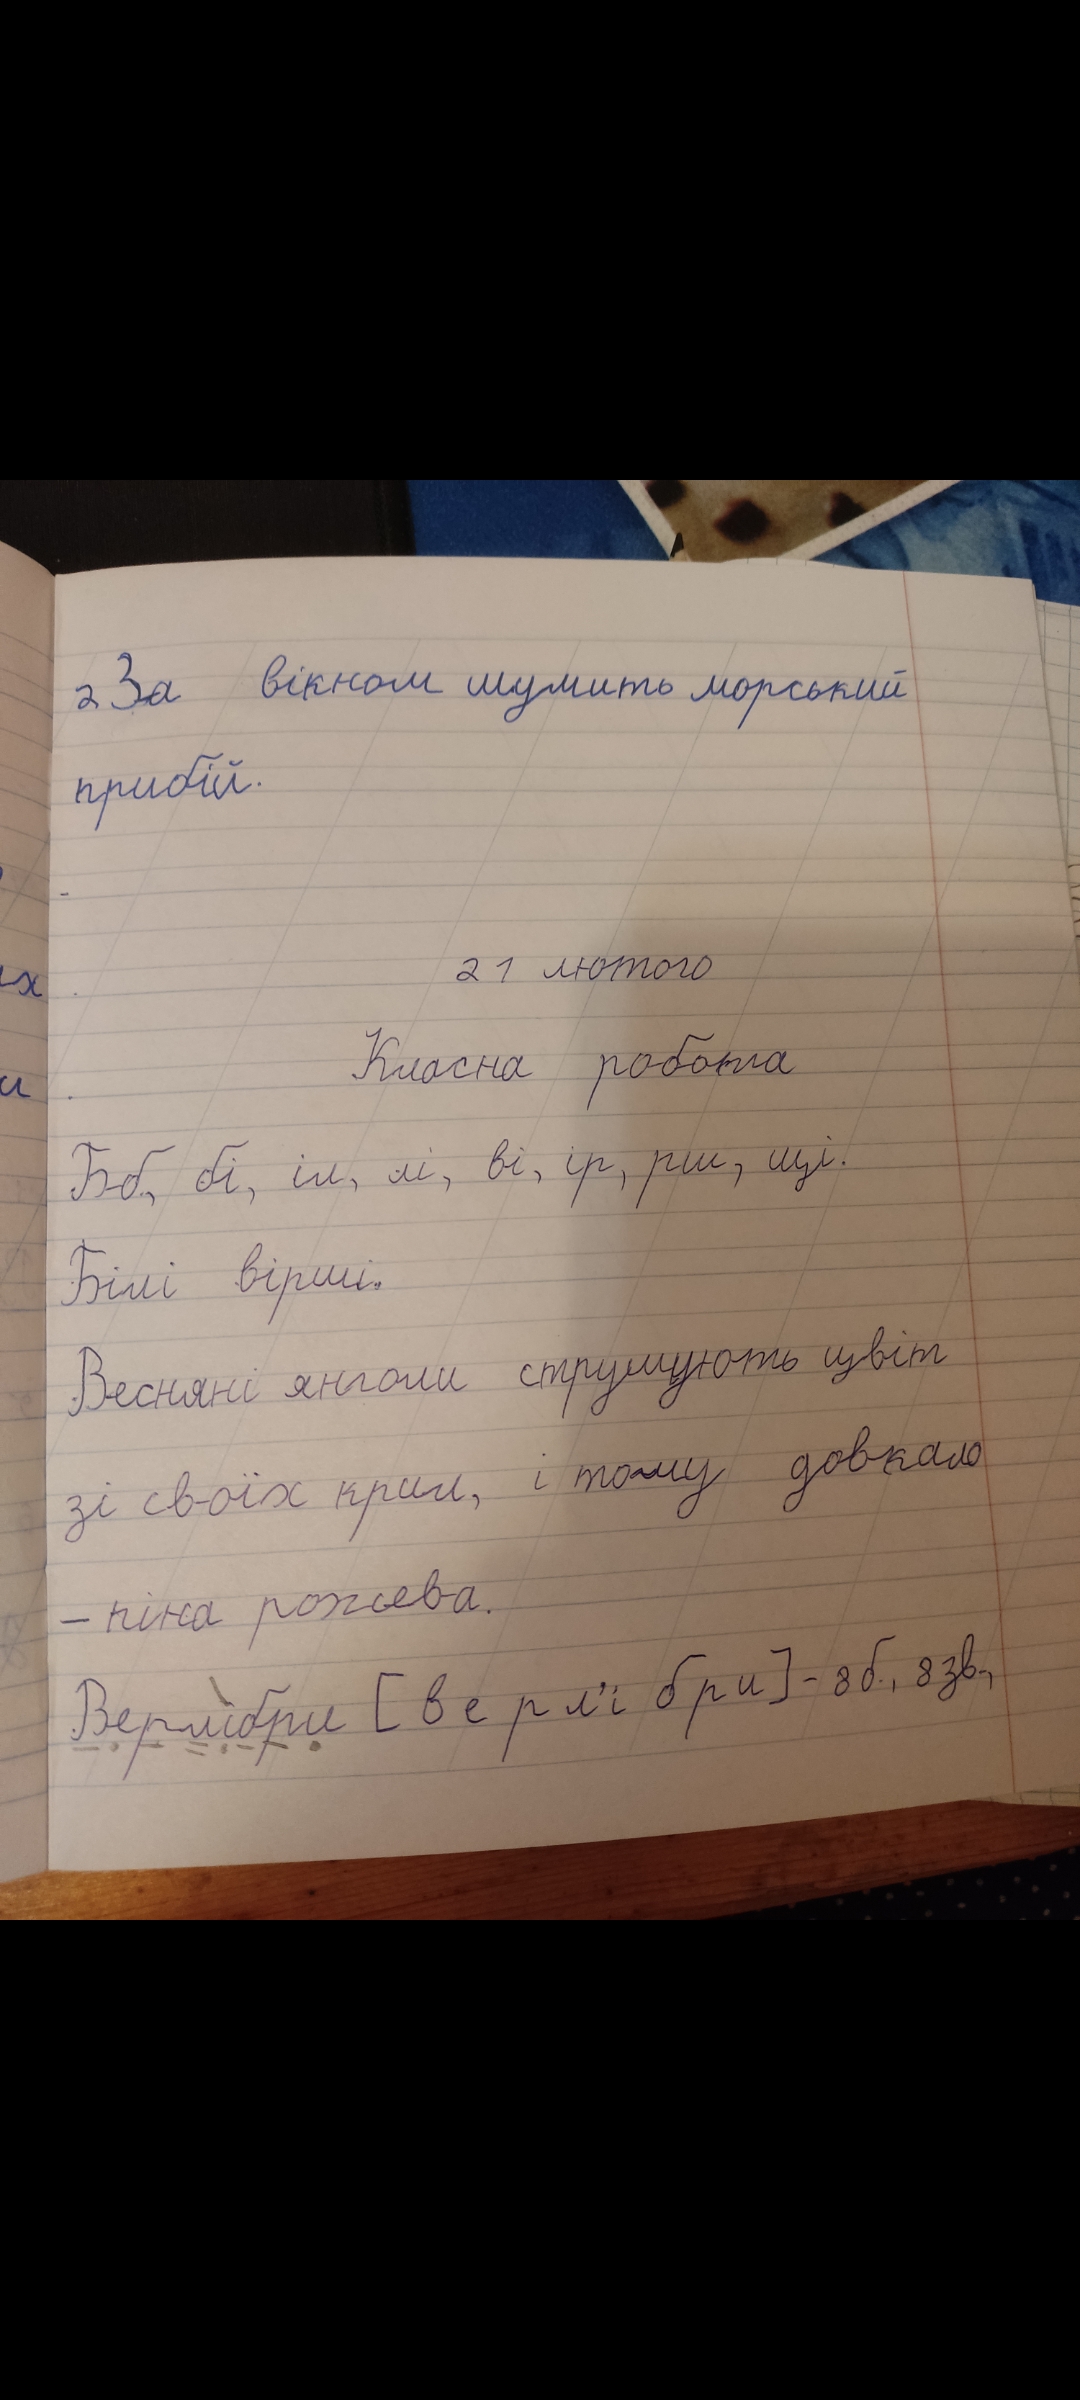 2 За вікном шумить морський
прибій.
21 лютого
Класна робота
Бб, бі, іл, лі, ві, ір, рш, щі.
Білі вірші.
Весняні янголи струшують цвіт
зі своїх крил, і тому довкало
– піна рожева.
Верлібри [верл'ібри] - 8 б., 8 зв.,